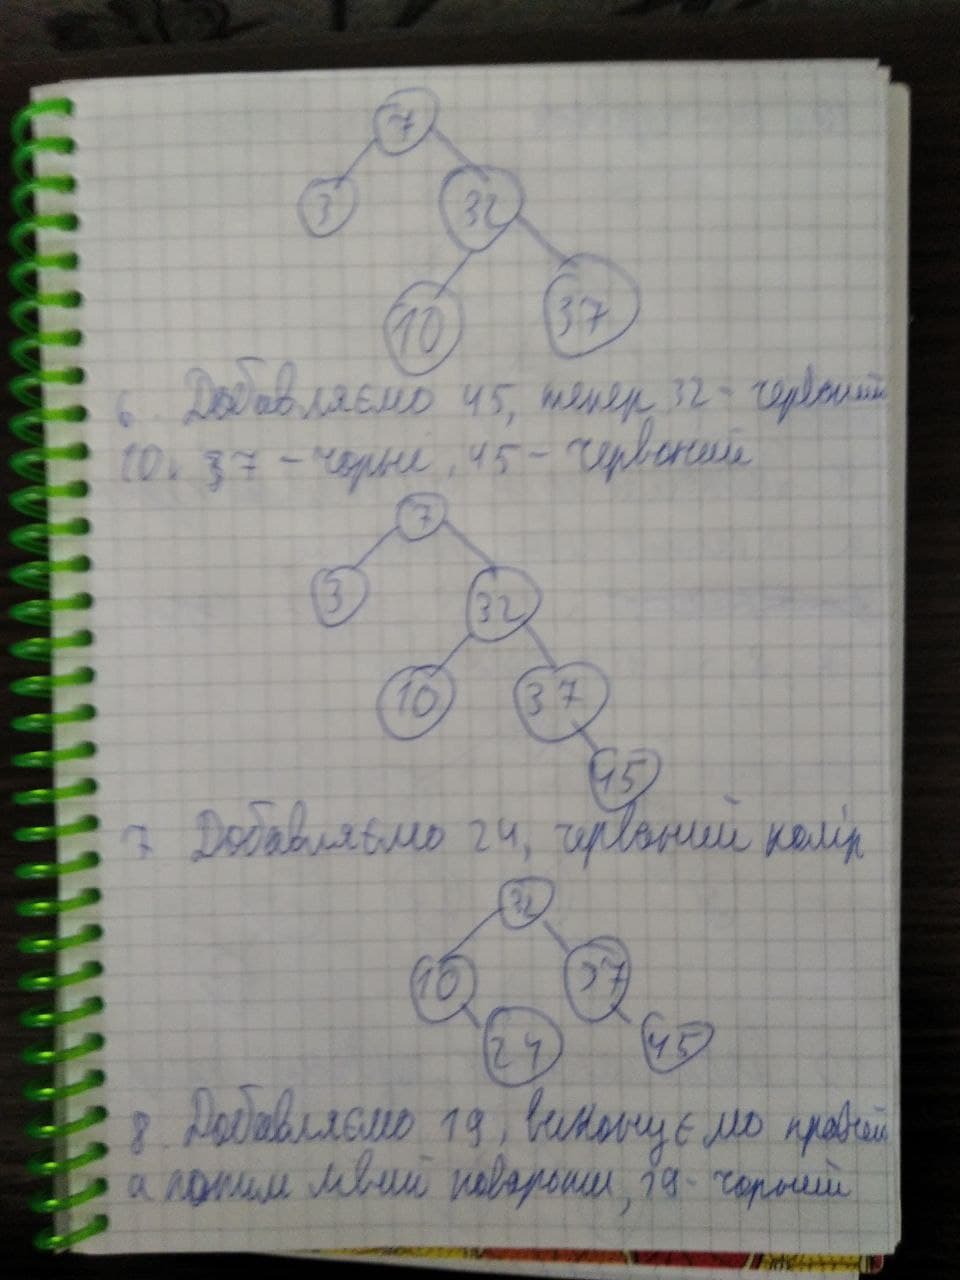 7
3 32
10 37
6. Добавляємо 45, тепер 32 - червоний
10, 37 - чорні, 45 - червоний
7
3 32
10 37
45
7 Добавляємо 24, червоний колір
32
10 37
24 45
8. Добавляємо 19, виконуємо правий
а потім лівий поворот, 19 - чорний